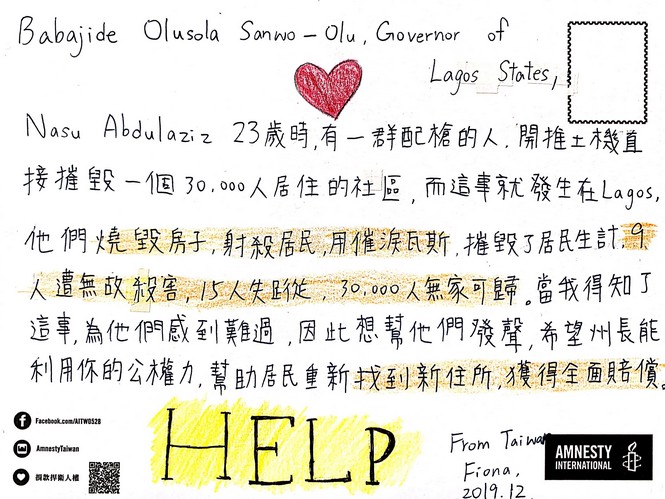 Babajide Olusola Sanwo-Olu, Governor of
Lagos States,
Nasu Abdulaziz 23歲時,有一群配槍的人,開推土機直
接摧毀一個30,000人居住的社區,而這事就發生在Lagos,
他們燒毀房子,射殺居民,用催淚瓦斯,摧毀了居民生計,9
人遭無故殺害,15人失蹤,30,000人無家可歸。當我得知了
這事,為他們感到難過,因此想幫他們發聲,希望州長能
利用你的公權力,幫助居民重新找到新住所,獲得全面賠償。
HELP
From Taiwan
Fiona,
2019.12.
Facebook.com/AITW0528
AmnestyTaiwan
捐款捍衛人權
AMNESTY
INTERNATIONAL